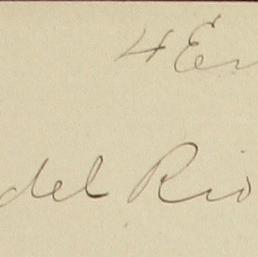 4 En
del Rio